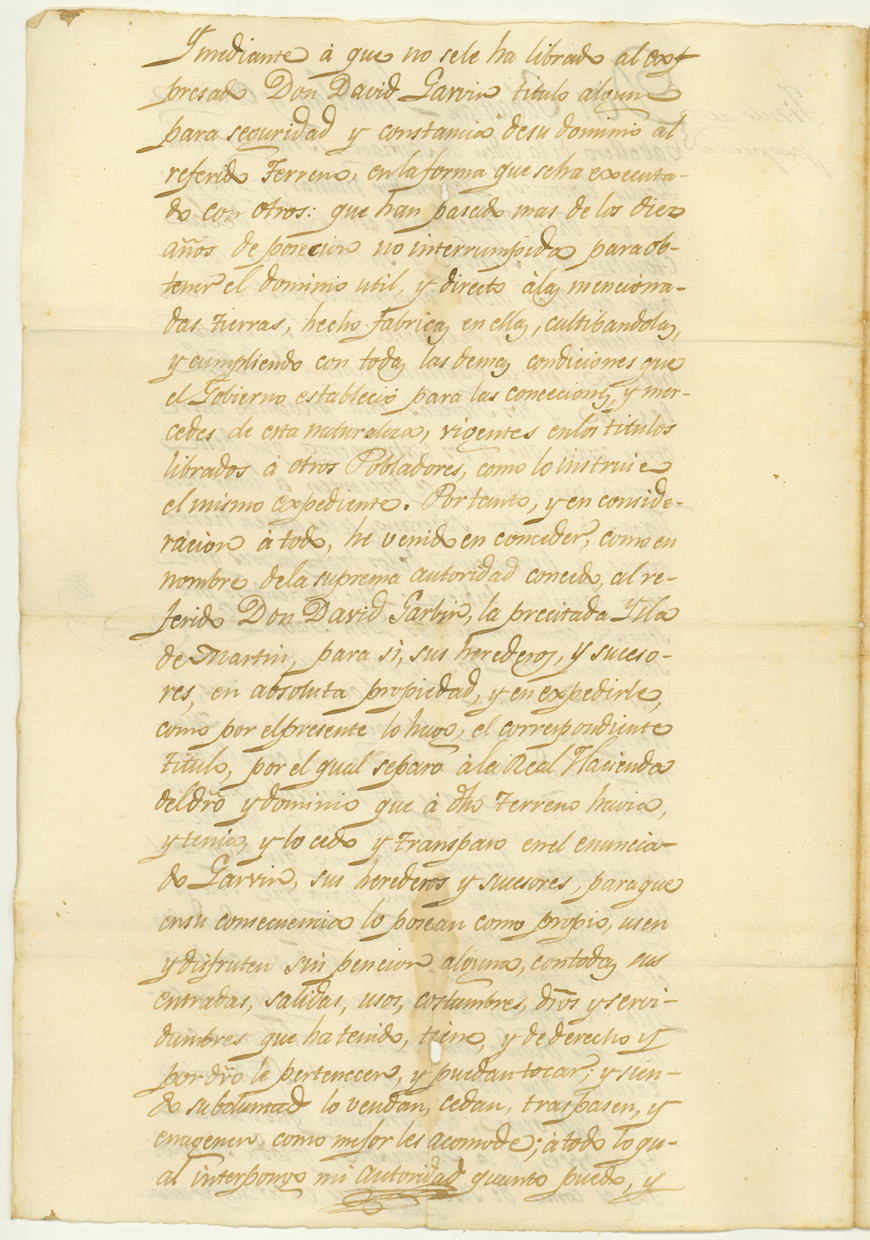 Y mediante à que no sele ha librado al ex-
presado Don David Garvin titulo alguno
para seguridad y constancia desu dominio al
referido Terreno, enla forma que seha executa-
do con otros: que han pasado mas de los diez
años de posecion no interrumpida para ob-
tener el dominio util, y directo àlas menciona-
das tierras, hecho fabricas en ellas, cultibandolas,
y cumpliendo con todas las demas condiciones que
el Gobierno estableció para las conceciones, y mer-
cedes de esta naturaleza, vigentes enlos titulos
librados à otros Pobladores, como lo instruie
el mismo expediente. Portanto, y en conside-
racion à todo, he venido en conceder, como en
nombre dela suprema autoridad concedo, al re-
ferido Don David Garbin, la precitada Ysla
de Martin, para si, sus herederos, y suceso-
res, en absoluta propiedad, y en expedirle,
como por elpresente lo hago, el correspondiente
titulo, por el qual separo à la Real Hacienda
del dro. y dominio que à dho. Terreno havia,
y tenia, y lo cedo y transpaso enel enuncia-
do Garvin, sus herederos y sucesores, paraque
ensu consecuencia lo posean como propio, usen
y disfruten sin pencion alguna, contodas sus
entradas, salidas, usos, costumbres, dros. y servi-
dumbres que ha tenido, tiene, y de derecho y
por dro. le pertenecen, y puedan tocar; y sien-
do suboluntad lo vendan, cedan, traspasen, y
enagenen como mejor les acomode; à todo lo qu-
al interpongo mi autoridad quanto puedo, y